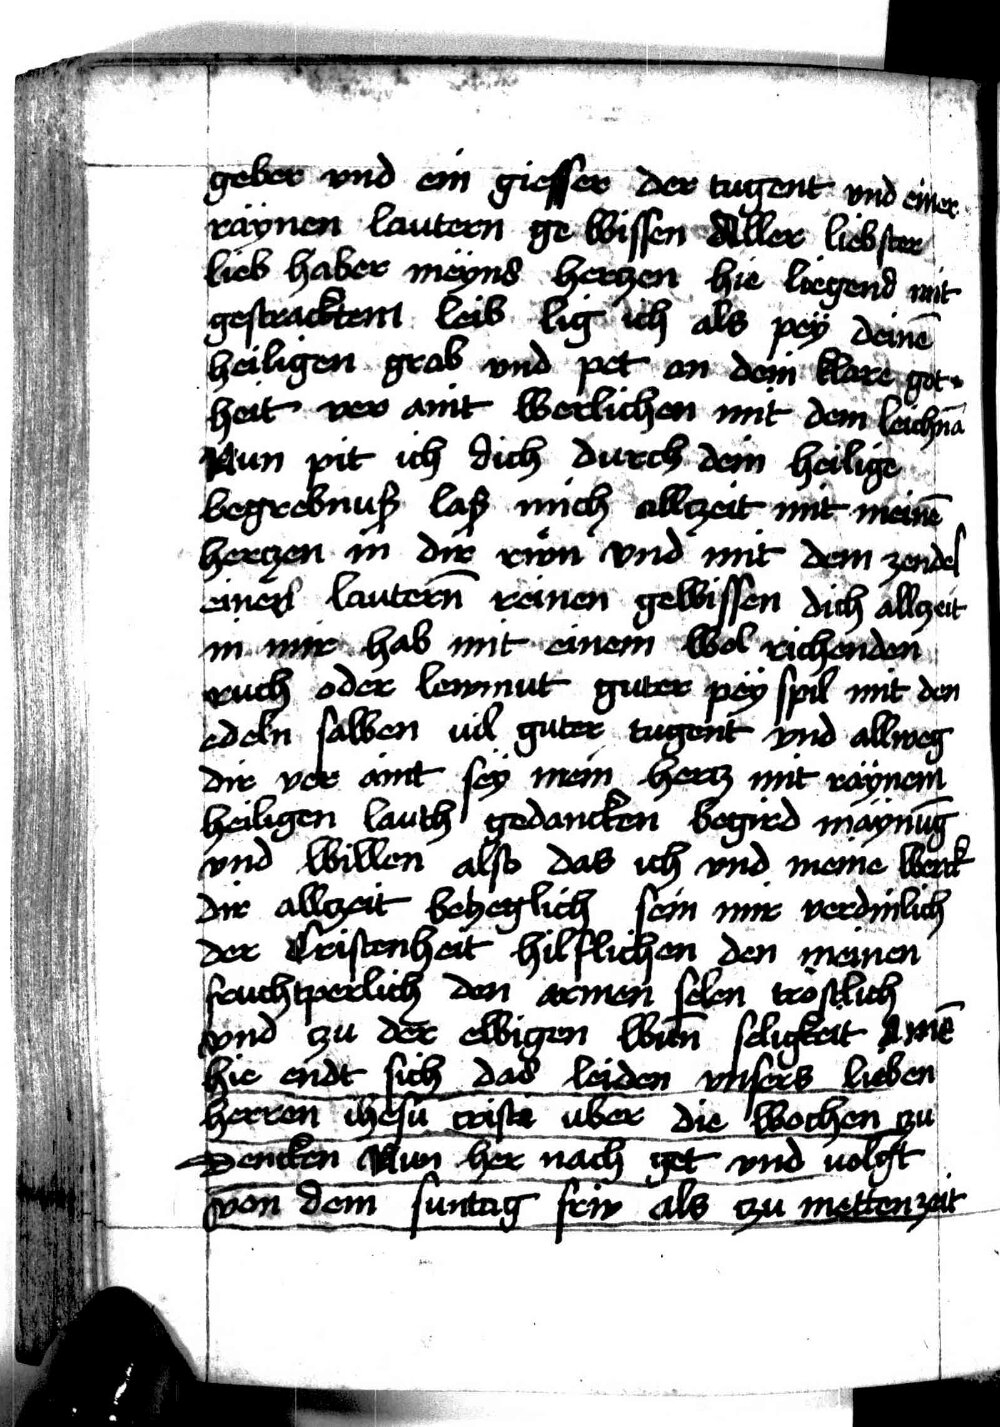 geber vnd ein giesser der tugent vnd einer
räynen lautern ge wissen Aller liebster
lieb haber meyns hertzen hie liegend mit
gestracktem leib lig ich als pey deinē
heiligen grab vnd pet an dein klare got-
heit ver aint werlichen mit dem leichnā
Nun pit ich dich durch dein heilige
begrebnuß laß mich allczeit mit meinē
hertzen in dir rwn vnd mit dem zendel
einer lauterñ reinen gewissen dich allczeit
in mir hab mit einem wol richenden
ruch oder lewmut guter pey spil mit den
edeln salben vil guter tugent vnd allweg
dir ver aint sey mein hertz mit räynem
heiligen lauth gedancken begird mäynūg
vnd willen also das ich vnd meine werck
dir allczeit beheglich sein mir verdinlich
der Cristenheit hilflichen den meinen
fruchtperlich den armen selen tröstlich
vnd zu der ewigen wun̄ seligkeit Amē
hie endt sich das leiden vnsers lieben
herren ihesu cristi uber die wochen zu
Dencken Nun her nach get vnd volgt
von dem suntag frw als zu mettenzeit